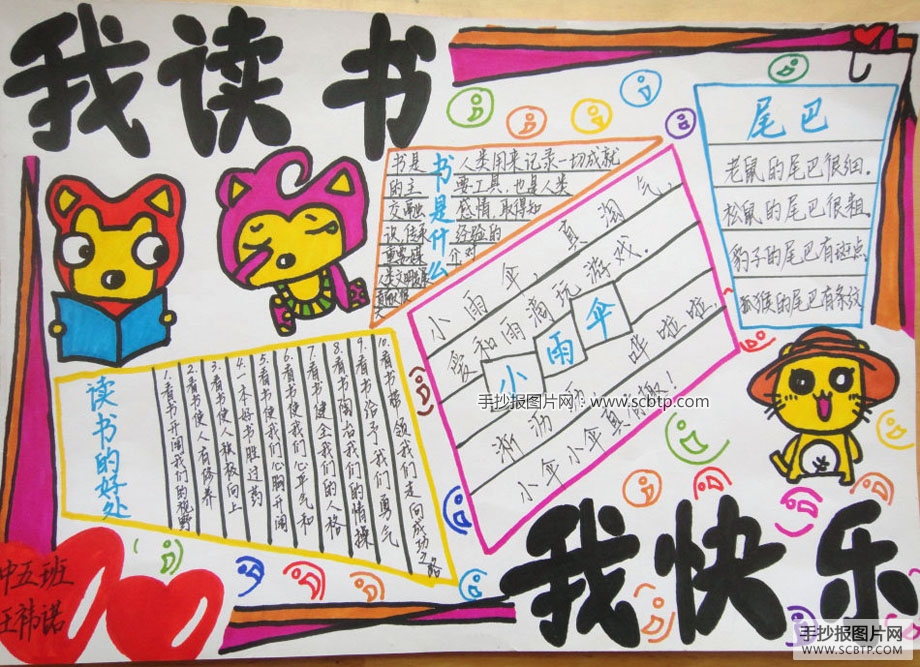 我读书
书是什么
书是 人类用来记录一切成就
的主 要工具,也是人类
交融 感情,取得知
识,传承 经验的
重要媒 介,对
小雨伞
小雨伞,真淘气,
爱和雨滴玩游戏.
淅沥沥 哗啦啦,
小伞小伞真有趣!
尾巴
老鼠的尾巴很细.
松鼠的尾巴很粗.
豹子的尾巴有斑点
狐猴的尾巴有条纹
读书的好处
1.看书开阔我们的视野
2.看书使人有修养
3.看书使人积极向上
4.一本好书胜过药
5.看书使我们心胸开阔
6.看书使我们心平气和
7.看书健全我们的人格
8.看书陶冶我们的情操
9.看书给予我们勇气
10.看书带领我们走向成功之路
手抄报图片网:www.scbtp.com
我快乐
中五班
王祎诺
SCBTP.COM
手抄报图片网
WWW.SCBTP.COM